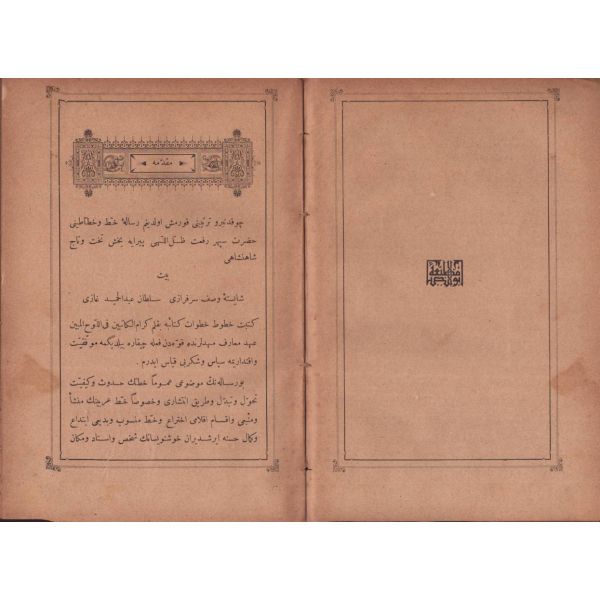 مطبعهٔ ابوالضيا
مقدمه
چوقدنبرو ترتيبنى قورمش اولديغم رسالهٔ خط و خطاطينى
حضرت سپهر رفعت ظل اللهى پيرايه بخش تخت وتاج
شاهنشاهى
بيت
شايستهٔ وصف سرفرازى سلطان عبدالحميد غازى
خطوط خطوات كتابه بقلم كرام الكاتبين فى اللوح المبين
عهد معارف مهدلرنده قوه‌دن فعله چيقاره بيلديكمه موفقيت
واقتداريمه سپاس وشكرينى قياس ايدرم .
بو رساله‌نك موضوعى عموماً خطك حدوث وكيفيت
تحول وتبدل وطريق انتشارى وخصوصاً خط عربينك منشأ
ومنبعى واقسام اقلامى اختراع وخط منسوب وبديعى ابتداع
وكمال حسنه ايرشديران خوشنويسانك شخص واسناد ومكان